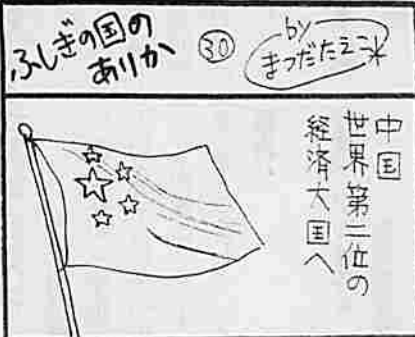 ふしぎの国の
ありか
㉚
by
まつだたえこ
中国
世界第二位の
経済大国へ